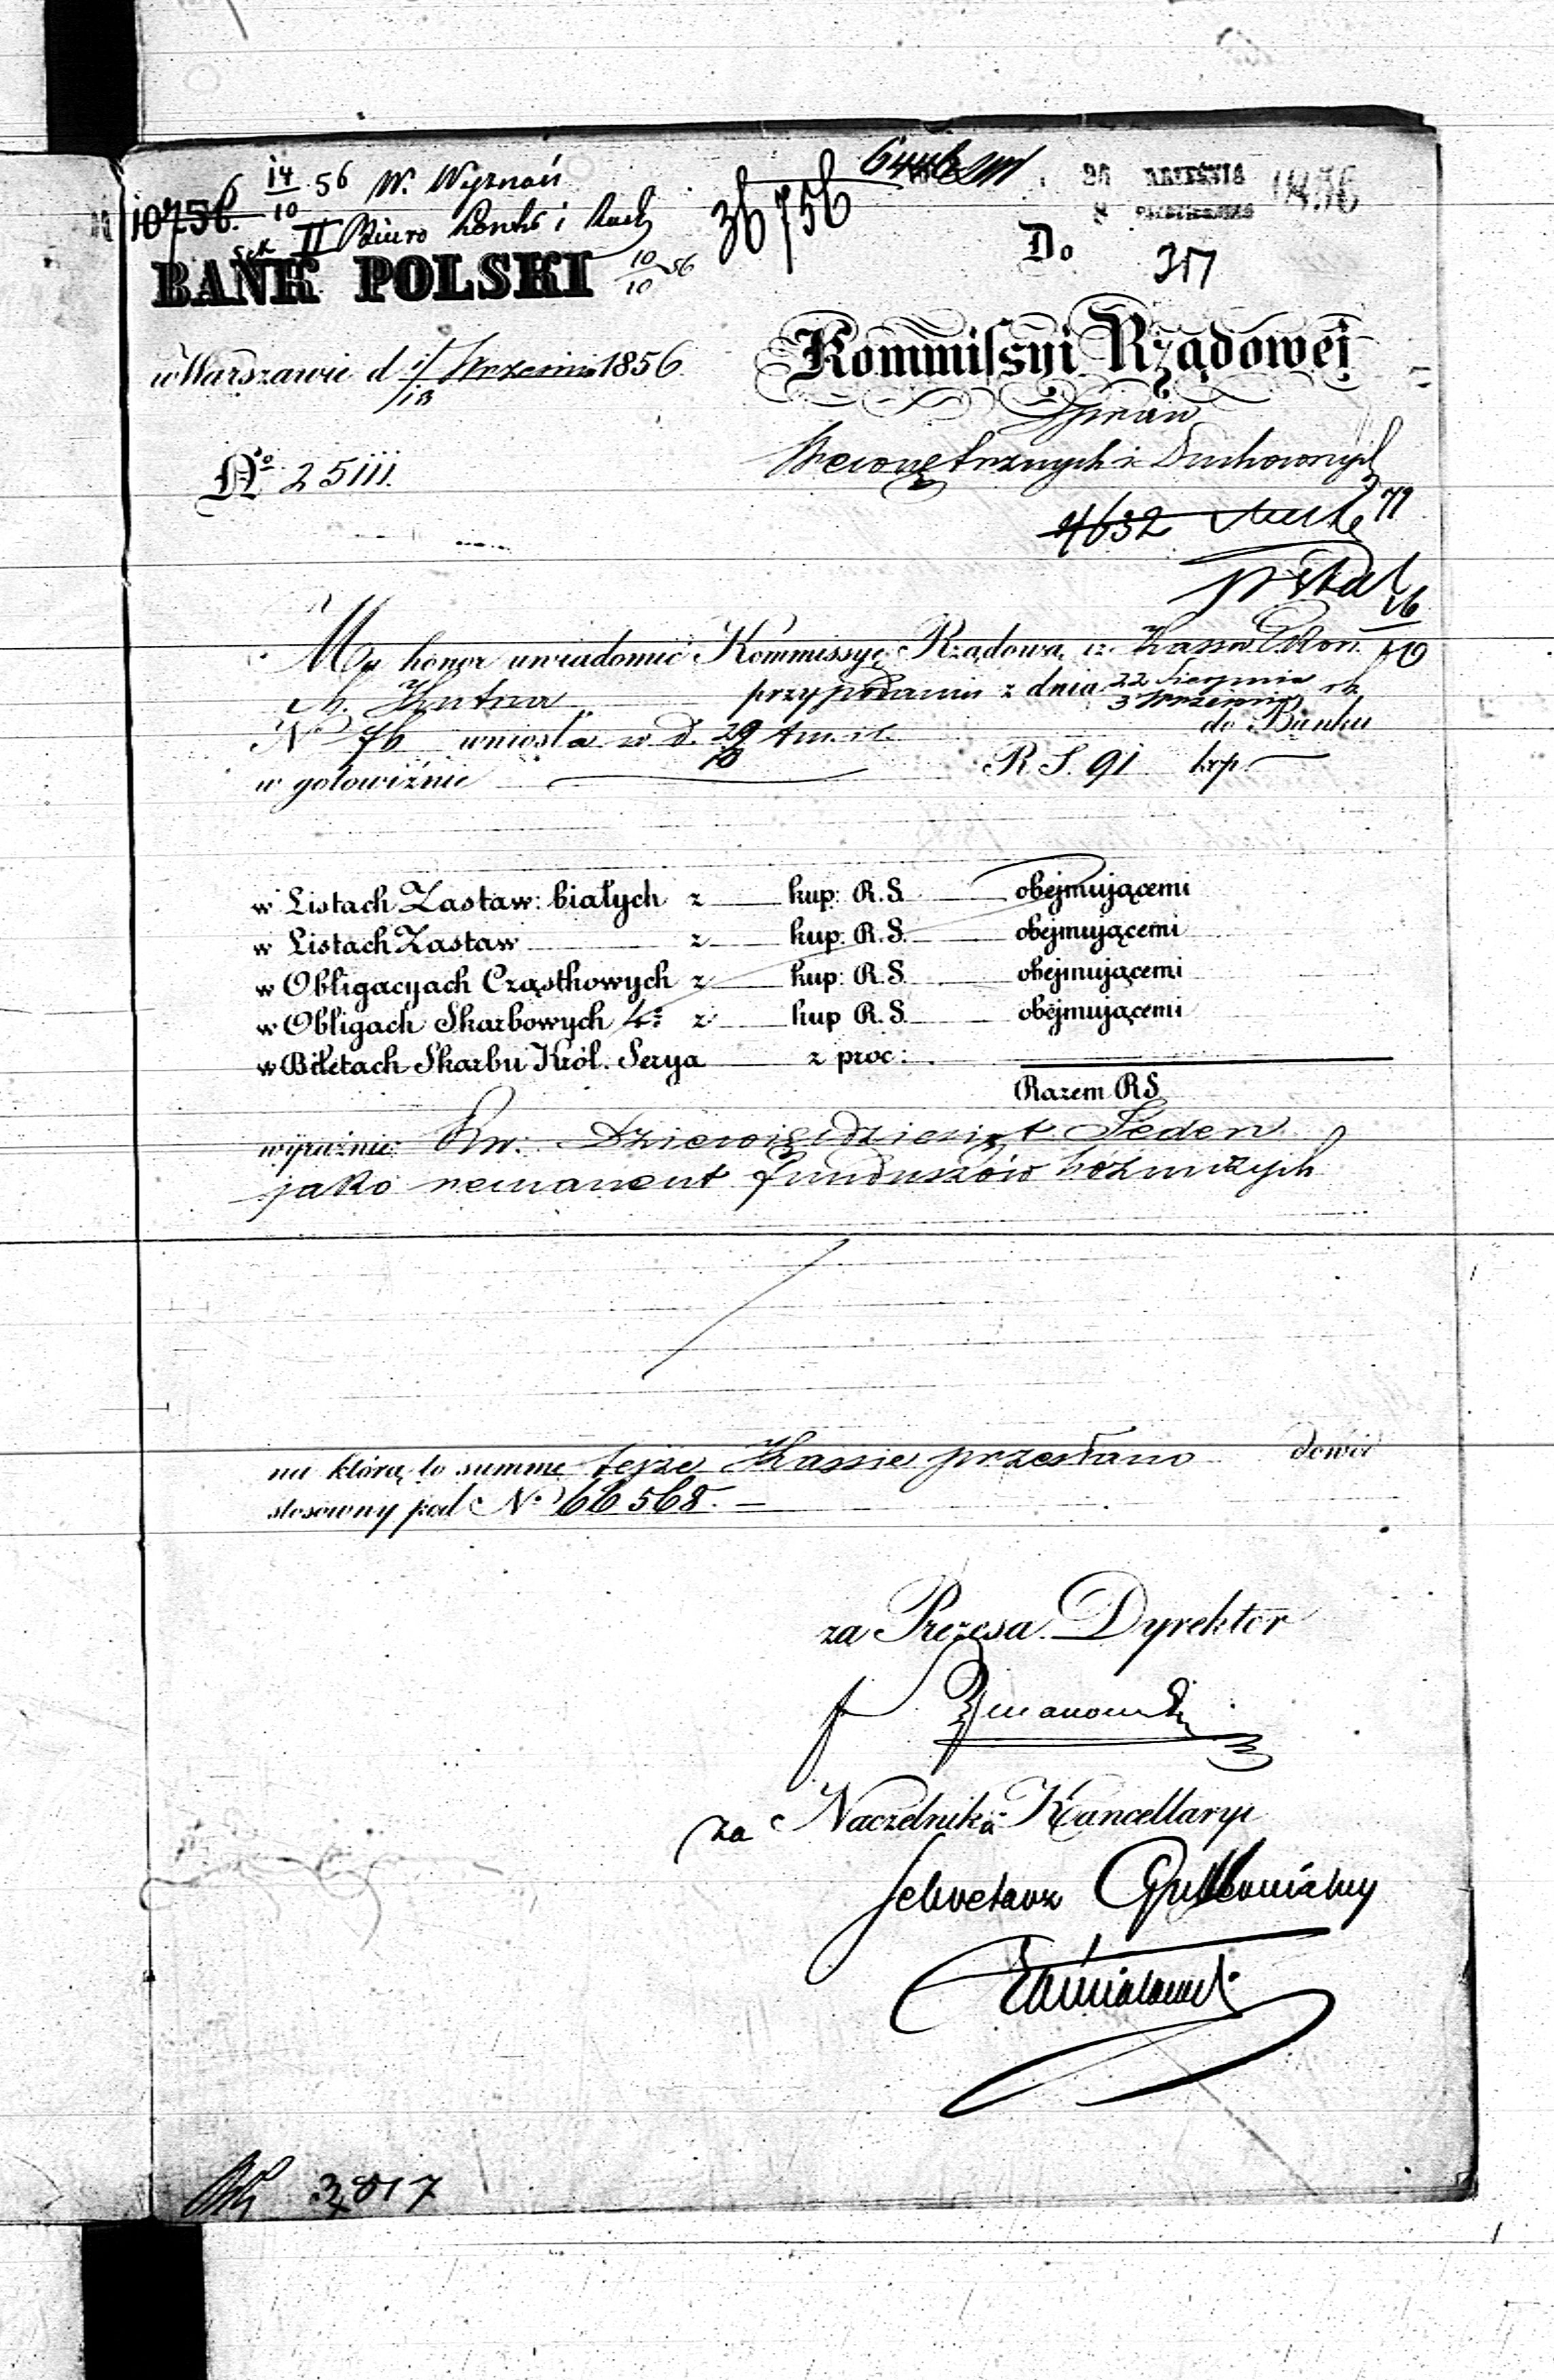 14/10 56 W. Wyznań
10756.
II Biuro Kontr i Rach
10/10 56
36756
26 WRZEŚNIA
8 PAŹDZIERNIKA
1856
BANK POLSKI
Do
317
w Warszawie d 1/13 Wrzesnia 1856
Kommissyi Rządowej
Spraw
Wewnętrznych i Duchownych
No 25111.
4632
16/10
Ma honor uwiadomić Kommissyę Rządową, iż Kassa Ekon.
M. Kutna przy podaniu z dnia 22 Sierpnia 3 Wrzesnia rb
No 76 wniosła w d. do Banku
w gotowiźnie R S. 91 kop. —
w Listach Zastaw: białych z kup: R.S. obejmującemi
w Listach Zastaw z kup. R.S. obejmującemi
w Obligacyach Cząstkowych z kup: R.S. obejmującemi
w Obligach Skarbowych 4: z kup R.S. obejmującemi
w Biletach Skarbu Król. Serya z proc:
Razem RS
wyraźnie Rs. Dziewięćdziesiąt Jeden
jako remanent funduszów bóżniczych
na którą to summę tejże Kassie przesłano dowód
stosowny pod No 66568. —
za Prezesa Dyrektor
za Naczelnika Kancellaryi
Sekretarz